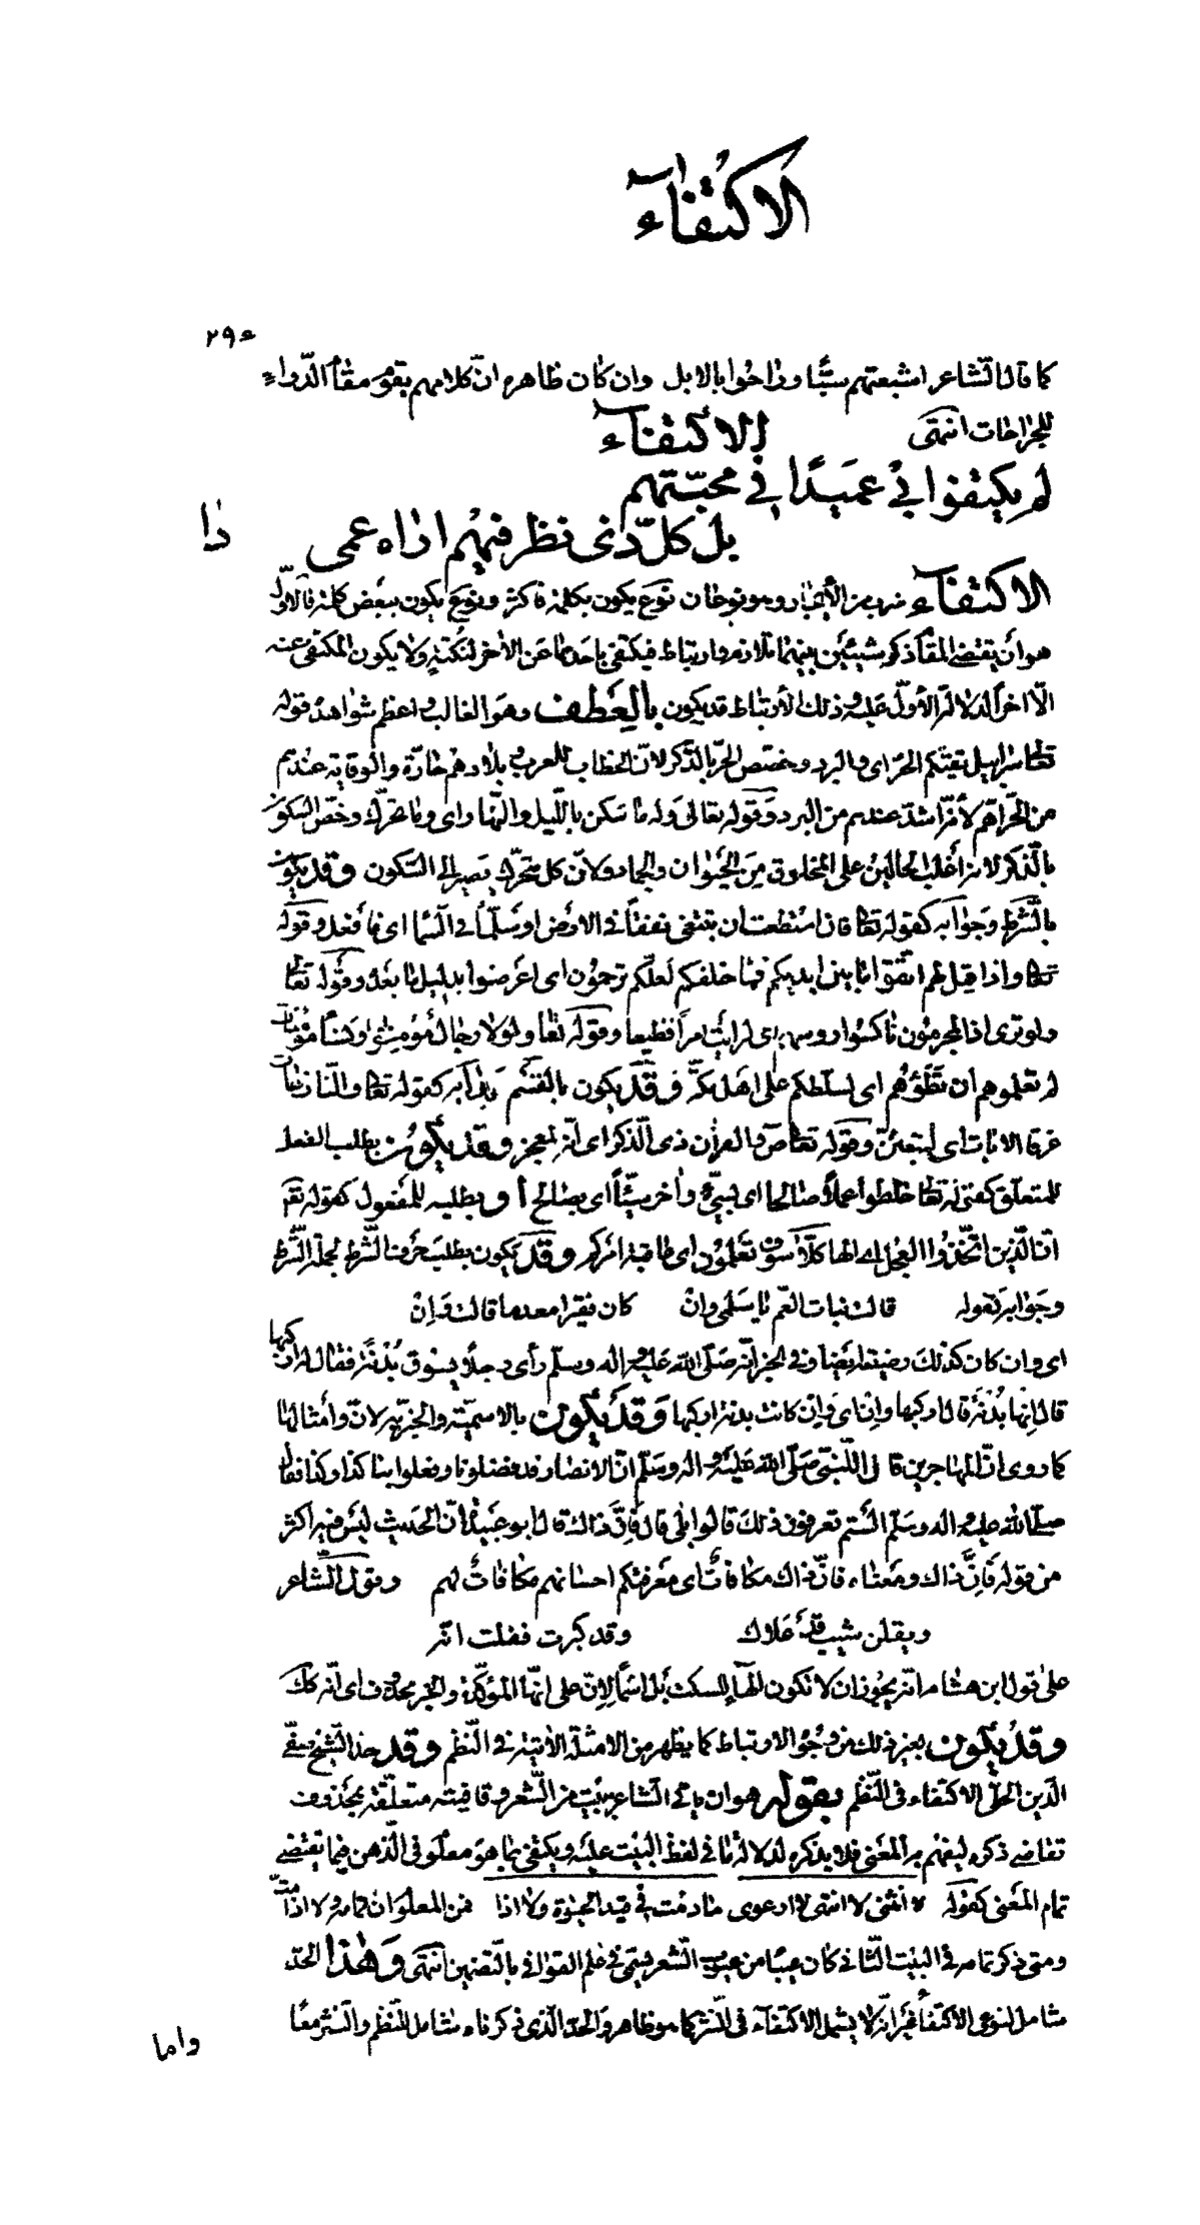 الاكتفاء
٢٩٤
كما قال الشاعر اشبعتهم سبّا وراحوا بالابل وان كان ظاهره انّ كلامهم يقوم مقام الدّواء
للجراحات انتهى الاكتفاء
لم يكتفوا في عميدًا في محبّتهم
بل كلّ ذى نظر فيهم اراه عمى
الاكتفاء ضرب من الإيجاز وهو نوعان نوع يكون بكلمة فاكثر ونوع يكون ببعض كلمة فالاوّل
هو أن يقتضى المقام ذكر شيئين بينهما تلازم وارتباط فيكتفى باحدهما عن الأخر لنكتةٍ ولا يكون المكتفى عنه
الّا اخرًا لدلالة الأوّل عليه وذلك الارتباط قد يكون بالعطف وهو الغالب واعظم شواهده قوله
تعالى سرابيل تقيكم الحرّ اى والبرد وخصّص الحرّ بالذكر لانّ الخطاب للعرب وبلادهم حارّة والوقاية عندهم
من الحرّ اهمّ لأنّه اشدّ عندهم من البرد وقوله تعالى وله ما سكن بالليل والنّهار اى وما تحرّك وخصّ السّكون
بالذّكر لانّه أغلب الحالين على المخلوق من الحيوان والجماد ولانّ كل متحرّك يصير الى السّكون وقد يكون
بالشّرط وجوابه كقوله تعالى فان استطعت ان تبتغى نفقاً فى الأرض او سلّماً فى السّماء اى فافعل وقوله
تعالى واذا قيل لهم اتّقوا ما بين ايديكم فما خلفكم لعلّكم ترحمون اى اعرضوا بدليل ما بعده وقوله تعالى
ولو ترى اذ المجرمون ناكسوا روسهم اى لرايت امراً فظيعا وقوله تعالى ولولا رجال مؤمنون ونساء مؤمنات
لم تعلموهم أن تطؤهم اى لسلّطكم على اهل مكّة وقد يكون بالقسم وجوابه كقوله تعالى والنّازعات
غرقا الايات اى لتبعثنّ وقوله تعالى ص والقران ذى الذّكر اى انّه لمعجز وقد يكون بطلب الفعل
للمتعلّق كقوله تعالى خلطوا عملًا صالحا اى بسيّئ وأخر سيّئاً اى بصالح أو بطلبه للمفعول كقوله تعالى
انّ الّذين اتّخذوا العجل اى الها كلّا سوف تعلمون اى عاقبة امركم وقد يكون بطلب حرف الشّرط لجملة الشّرط
وجوابه كقوله قالت بنات العمّ يا سلمى وانْ كان فقيرا معدما قالت وَاِنْ
اى وان كان كذلك رضيته ايضا وفى الخبر انّه صلّى الله عليه واله وسلّم رأى رجلًا يسوق بُدْنةً فقال له اركبها
قال انها بُدْنةٌ قال اركبها وان اى وان كانت بدنة اركبها وقد يكون بالاسميّة والخبريّة لانّ وأمثالها
كما روى انّ المهاجرين قالوا للنّبىّ صلّى الله عليه واله وسلّم انّ الانصار قد فضلونا وفعلوا بنا كذا وكذا فقال
صلّى الله عليه واله وسلّم الستم تعرفون ذلك قالوا بلى قال فانّ ذاك قال ابو عبيدة انّ الحديث ليس فيه اكثر
من قوله فَاِنَّ ذاك ومعناه فانّ ذاك مكافاتٌ اى معرفتكم احسانهم مكافاتٌ لهم وقول الشّاعر
ويقلن شيب قد علاك وقد كبرت فقلت انّه
على قول ابن هشام انّه يجوز ان لا تكون الهاء للسكت بل اسمًا لاِنّ على انّها المؤكّدة والخبر محذوف اى انّه كذلك
وقد يكون بغير ذلك من وجوه الارتباط كما يظهر من الامثلة الأتية فى النّظم وقد حدّ الشّيخ صفىّ
الدّين الحلّى الاكتفاء فى النّظم بقوله هو ان ياتى الشّاعر ببيت من الشّعر وقافيته متعلّقة بمحذوف
تقاضى ذكره ليفهم به المعنى فلا يذكره لدلالة ما فى لفظ البيت عليه ويكتفى بما هو معلوم فى الذّهن فيما يقتضى
تمام المعنى كقوله لا انثنى لا انتهى لا ارعوى ما دمت فى قيد الحيوة ولا اذا فمن المعلوم انّ تمامه ولا اذا متّ
ومتى ذكر تمامه فى البيت الثّانى كان عيبًا من عيوب الشّعر يسمّى فى علم القوافى بالتّضمين انتهى وهٰذا الحدّ
شامل لنوعى الاكتفاء غير انّه لا يشمل الاكتفاء فى النّثر كما هو ظاهر والحدّ الّذى ذكرناه شامل للنّظم والنّثر معًا
واما